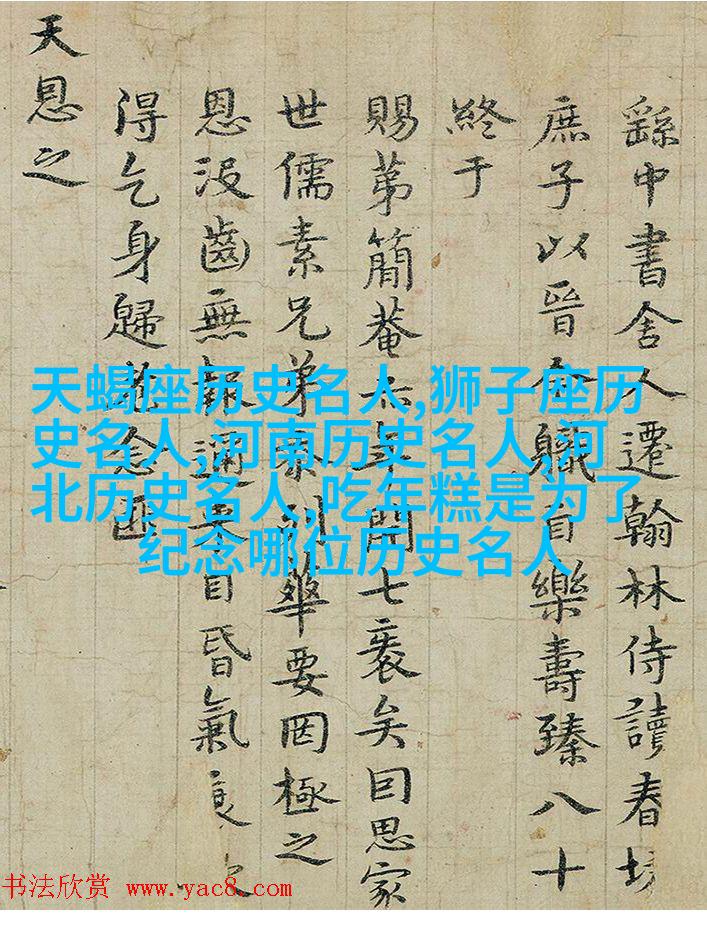 繇中書舍人遷翰林侍讀春坊
庶子以晉今職自樂壽臻八十
終于
賜苐簡菴六年開七袠矣囙思家
世儒素兄弟忝列華要罔極之
恩沒齒無報邇來目昏氣衰
得乞身歸念
天恩之
天蝎座历史名人,狮子座历
史名人,河南历史名人,河
北历史名人,吃年糕是为了
纪念哪位历史名人
书法欣赏 www.yac8.com